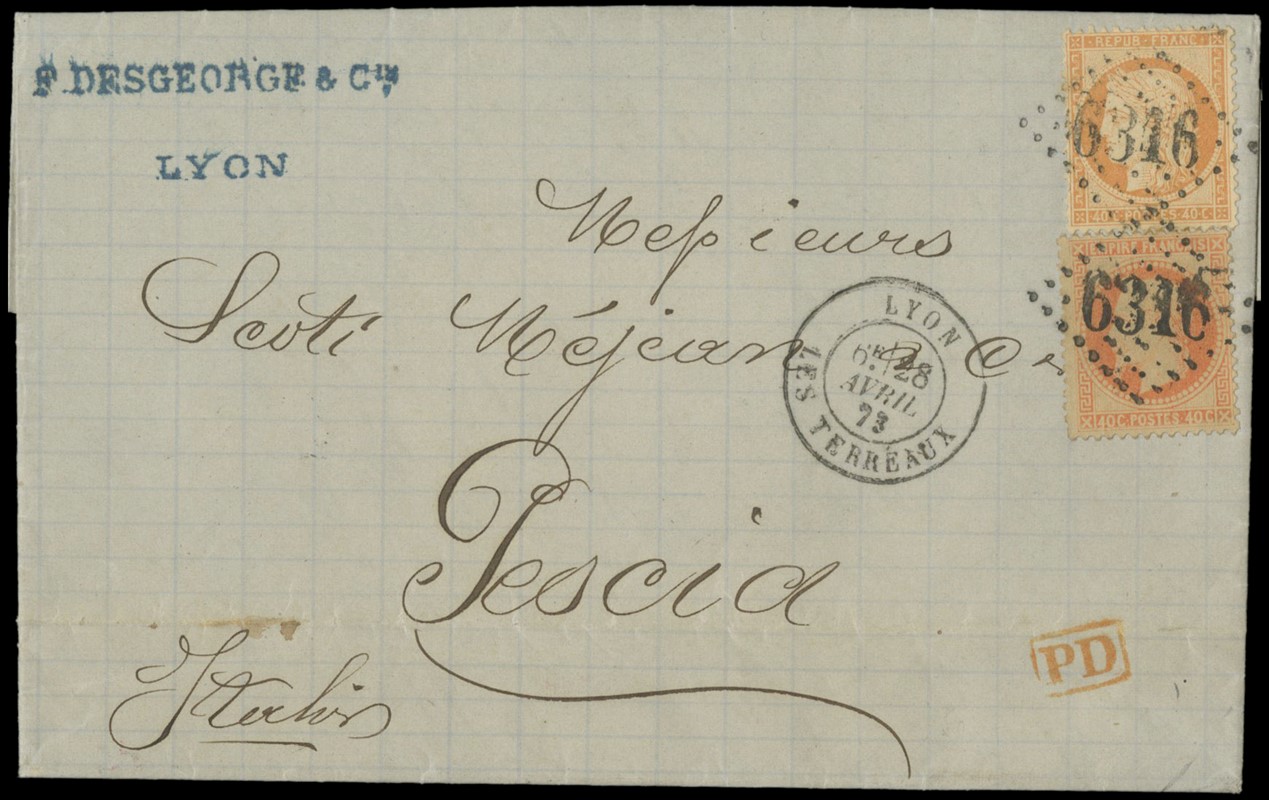 F. DESGEORGE & Cie,
LYON
REPUB. FRANC.
6316
40 C. POSTES. 40 C
EMPIRE FRANÇAIS
6316
40 C. POSTES 40 C
Messieurs
Scoti Méjean & Ce
LYON
6E 28
AVRIL
73
LES TERREAUX
Pescia
PD
Italie